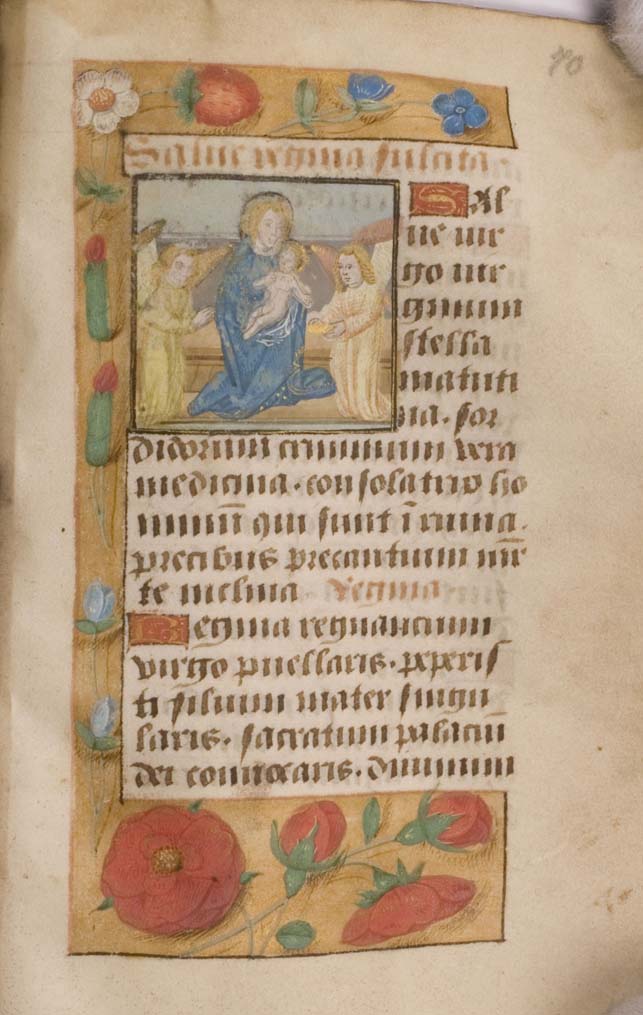 70
Salue regina fulcita
Sal
ue uir
go uir
ginum
stella
matuti
na. sor
didorum criminum vera
medicina. consolatrip ho
minū qui sunt ī ruina.
precibus precantuum
te inclina Regina
Regina regnancium
virgo puellaris. peperis
ti filium mater singu
laris. sacratum palaciū
dei diuinum